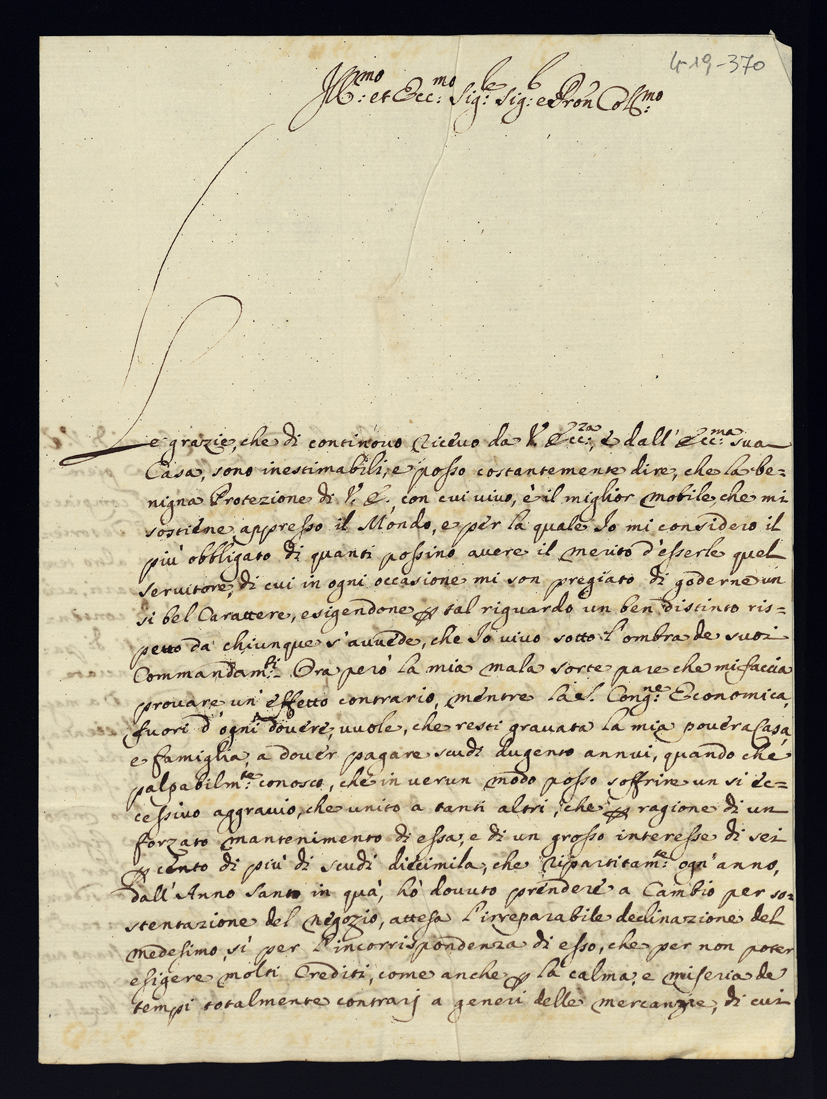 419-370
Ill.mo et Ecc.mo Sig.re Sig.e e Pron Coll.mo
Le grazie, che di continovo ricevo da V. Ecc.za, e dall' Ecc.ma sua
Casa, sono inestimabili, e posso costantemente dire, che la be=
nigna Protezione di V. E. con cui vivo, è il miglior mobile che mi
sostiene appresso il Mondo, e per la quale Io mi considero il
più obbligato di quanti possino avere il merito d'esserle quel
servitore, di cui in ogni occasione mi son pregiato di goderne un
si bel Carattere, esigendone p tal riguardo un ben distinto ris=
petto da chiunque s'avvede, che Io vivo sotto l'ombra de suoi
Commandam.ti Ora però la mia mala sorte pare che mi faccia
provare un'effetto contrario, mentre la S. Cong.ne Economica,
fuori d'ogni dovere, vuole, che resti gravata la mia povera Casa,
e famiglia, a dover pagare scudi dugento annui, quando che
palpabilm.te conosco, che in verun modo posso soffrire un si ec=
cessivo aggravio, che unito a tanti altri, che p ragione di un
forzato mantenimento di essa, e di un grosso interesse di sei
p cento di più di scudi diecimila, che ripartitam.te ogn'anno,
dall'Anno Santo in quà, hò dovuto prendere a Cambio per so=
stentazione del negozio, attesa l'irreparabile declinazione del
medesimo, sì per l'incorrispondenza di esso, che per non poter
esigere molti Crediti, come anche p la calma, e miseria de
tempi totalmente contrarj a generi delle mercanzie, di cui